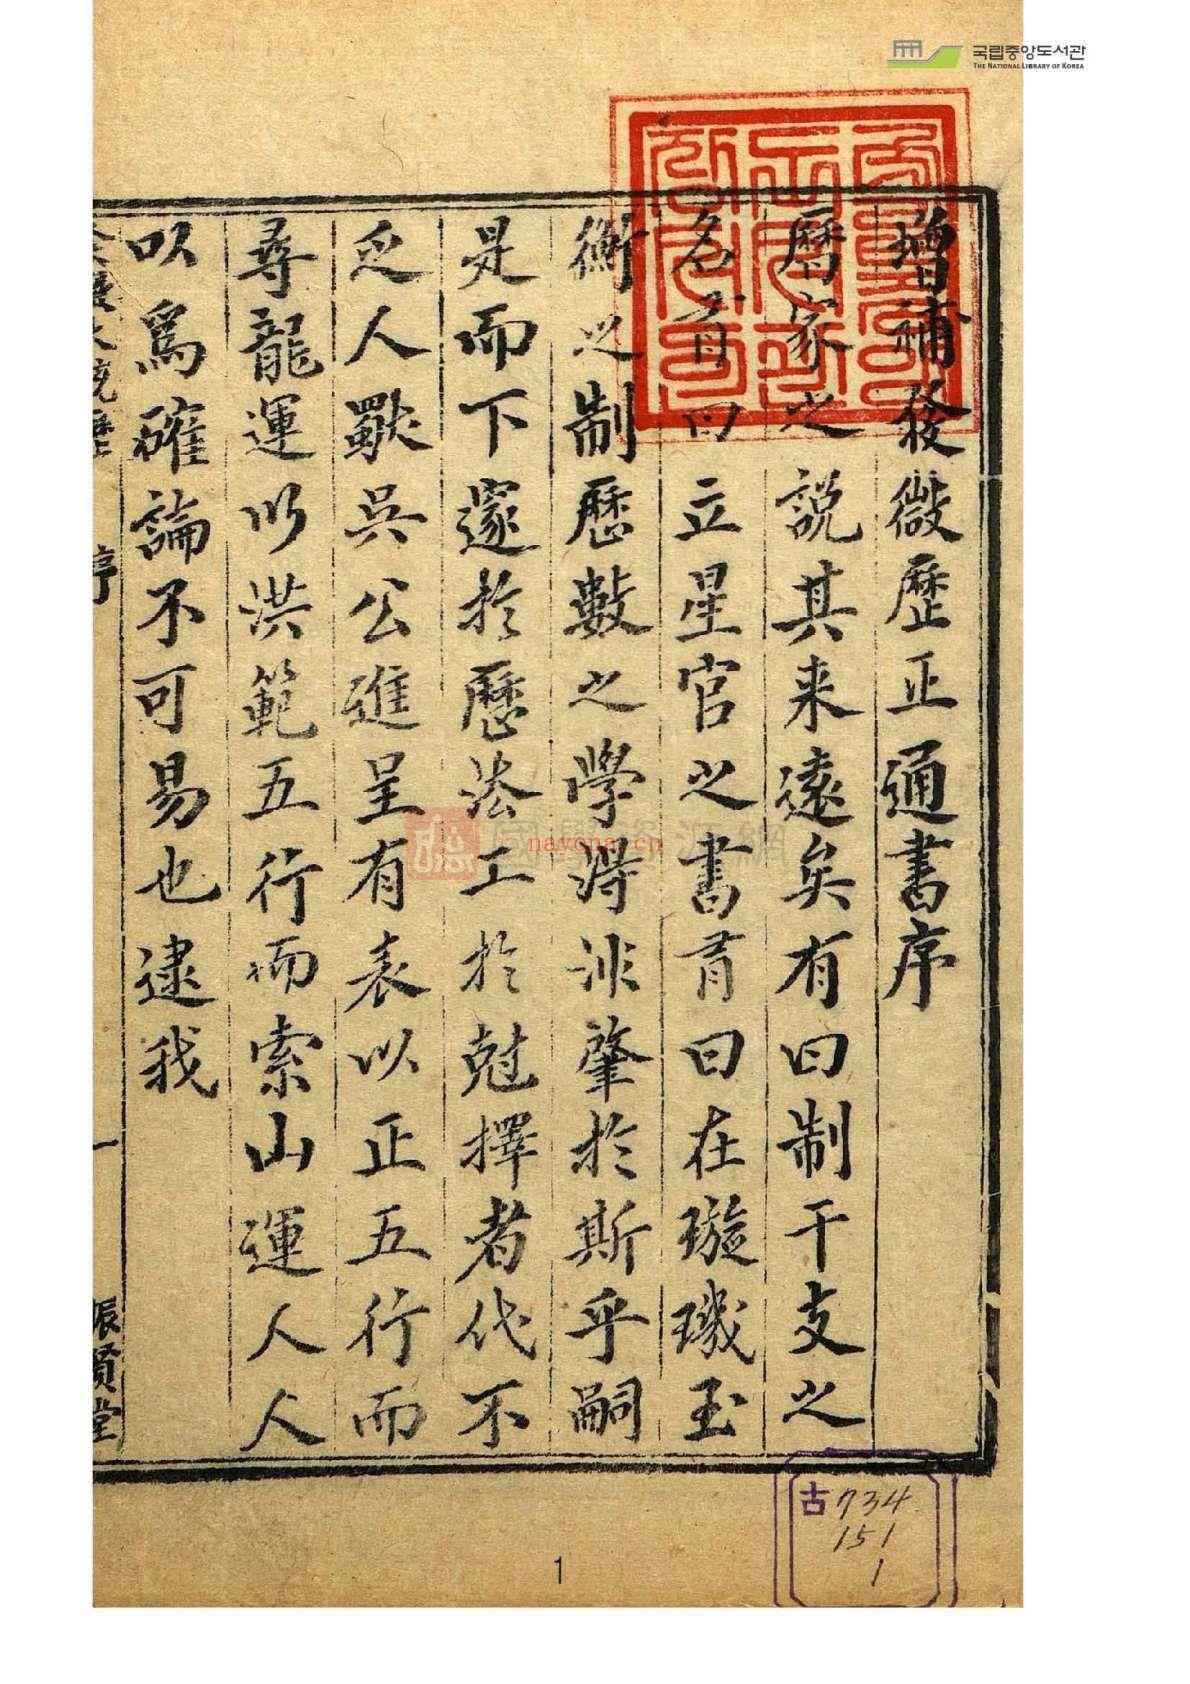 국립중앙도서관
THE NATIONAL LIBRARY OF KOREA
增補發微歷正通書序
曆家之說其来遠矣有曰制干支之
名有曰立星官之書有曰在璇璣玉
衡之制歷數之學得非肇於斯乎嗣
是而下邃於歷法工於尅擇者代不
乏人歟吳公進呈有表以正五行而
尋龍運以洪範五行而索山運人人
以爲確論不可易也逮我
序
一
振賢堂
nayona.cn
古734
151
1
1